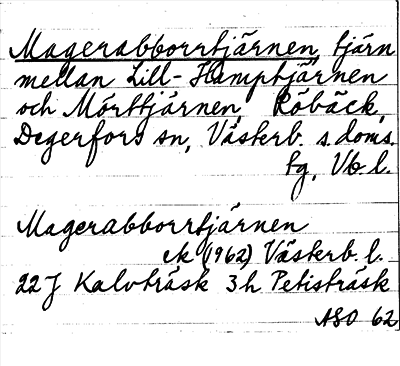 Magerabborrtjärnen, tjärn
mellan Lill-Hamptjärnen
och Mörttjärnen, Röbäck,
Degerfors sn, Västerb. s. doms.
tg, Vb l.
Magerabborrtjärnen
ek (1962) Västerb. l.
22 J Kalvträsk 3h Petisträsk
ASO 62